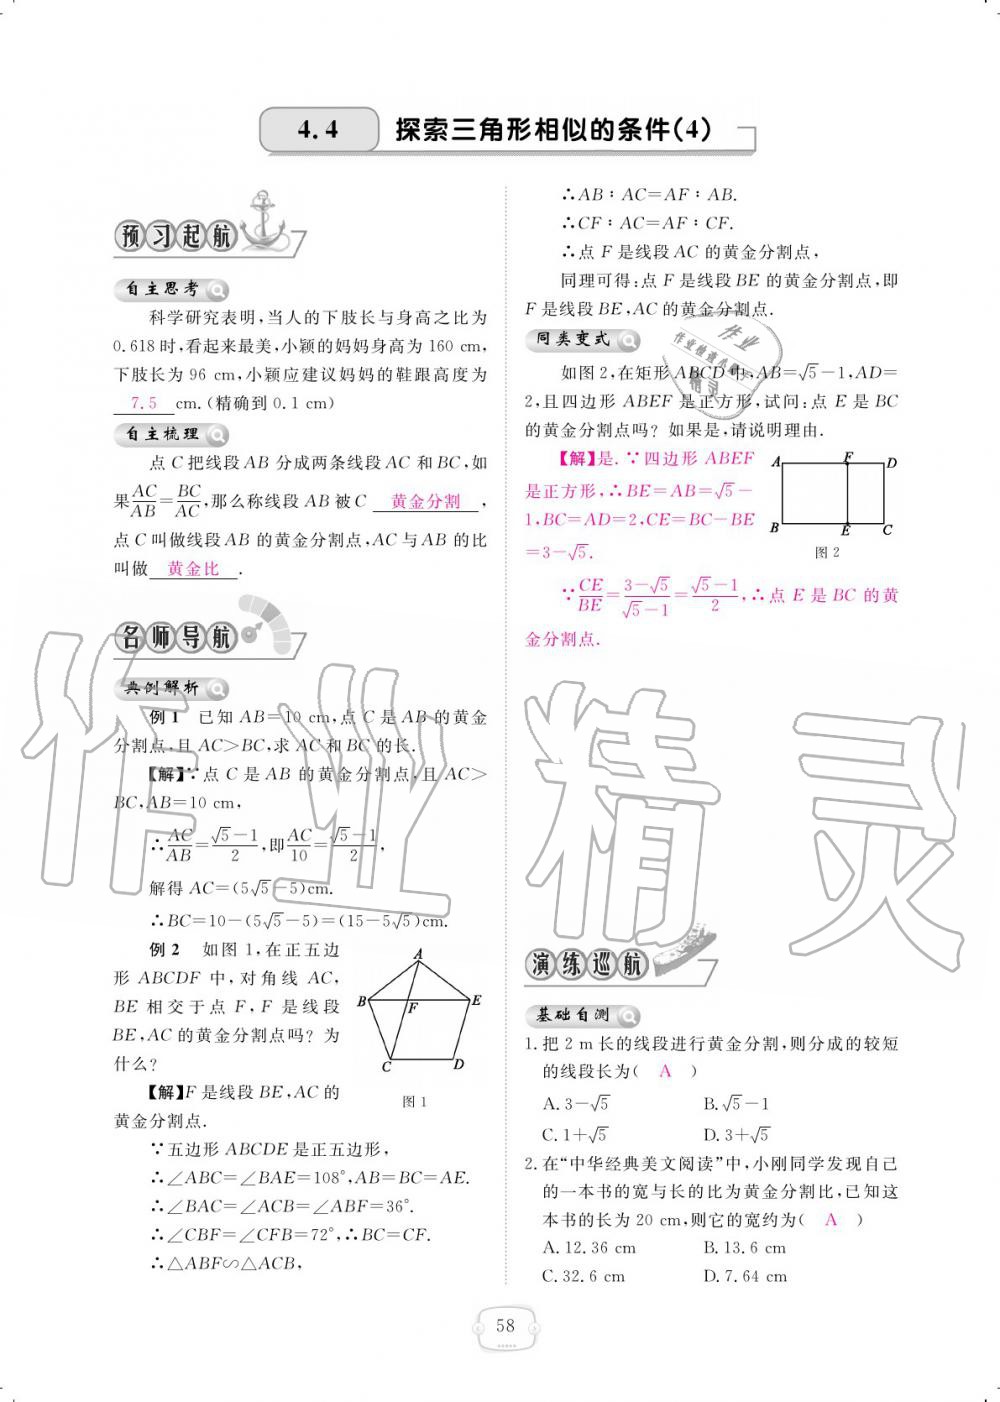 4.4 探索三角形相似的条件(4)
预习起航
自主思考
科学研究表明,当人的下肢长与身高之比为
0.618时,看起来最美,小颖的妈妈身高为160 cm,
下肢长为96 cm,小颖应建议妈妈的鞋跟高度为
7.5 cm.(精确到0.1 cm)
自主梳理
点C把线段AB分成两条线段AC和BC,如
果AC/AB=BC/AC,那么称线段AB被C 黄金分割,
点C叫做线段AB的黄金分割点,AC与AB的比
叫做 黄金比 .
名师导航
典例解析
例1 已知AB=10 cm,点C是AB的黄金
分割点,且AC>BC,求AC和BC的长.
【解】∵点C是AB的黄金分割点,且AC>
BC,AB=10 cm,
∴AC/AB=(√5-1)/2,即AC/10=(√5-1)/2,
解得AC=(5√5-5)cm.
∴BC=10-(5√5-5)=(15-5√5)cm.
例2 如图1,在正五边
形ABCDF中,对角线AC,
BE相交于点F,F是线段
BE,AC的黄金分割点吗?为
什么?
A
B
F
E
C
D
图1
【解】F是线段BE,AC的
黄金分割点.
∵五边形ABCDE是正五边形,
∴∠ABC=∠BAE=108°,AB=BC=AE.
∴∠BAC=∠ACB=∠ABF=36°.
∴∠CBF=∠CFB=72°,∴BC=CF.
∴△ABF∽△ACB,
∴AB∶AC=AF∶AB.
∴CF∶AC=AF∶CF.
∴点F是线段AC的黄金分割点,
同理可得:点F是线段BE的黄金分割点,即
F是线段BE,AC的黄金分割点.
同类变式
如图2,在矩形ABCD中,AB=√5-1,AD=
2,且四边形ABEF是正方形,试问:点E是BC
的黄金分割点吗?如果是,请说明理由.
【解】是.∵四边形ABEF
是正方形,∴BE=AB=√5-
1,BC=AD=2,CE=BC-BE
=3-√5.
A F D
B E C
图2
∵CE/BE=(3-√5)/(√5-1)=(√5-1)/2,∴点E是BC的黄
金分割点.
演练巡航
基础自测
1.把2 m长的线段进行黄金分割,则分成的较短
的线段长为( A )
A.3-√5 B.√5-1
C.1+√5 D.3+√5
2.在“中华经典美文阅读”中,小刚同学发现自己
的一本书的宽与长的比为黄金分割比,已知这
本书的长为20 cm,则它的宽约为( A )
A.12.36 cm B.13.6 cm
C.32.6 cm D.7.64 cm
58
作业精灵